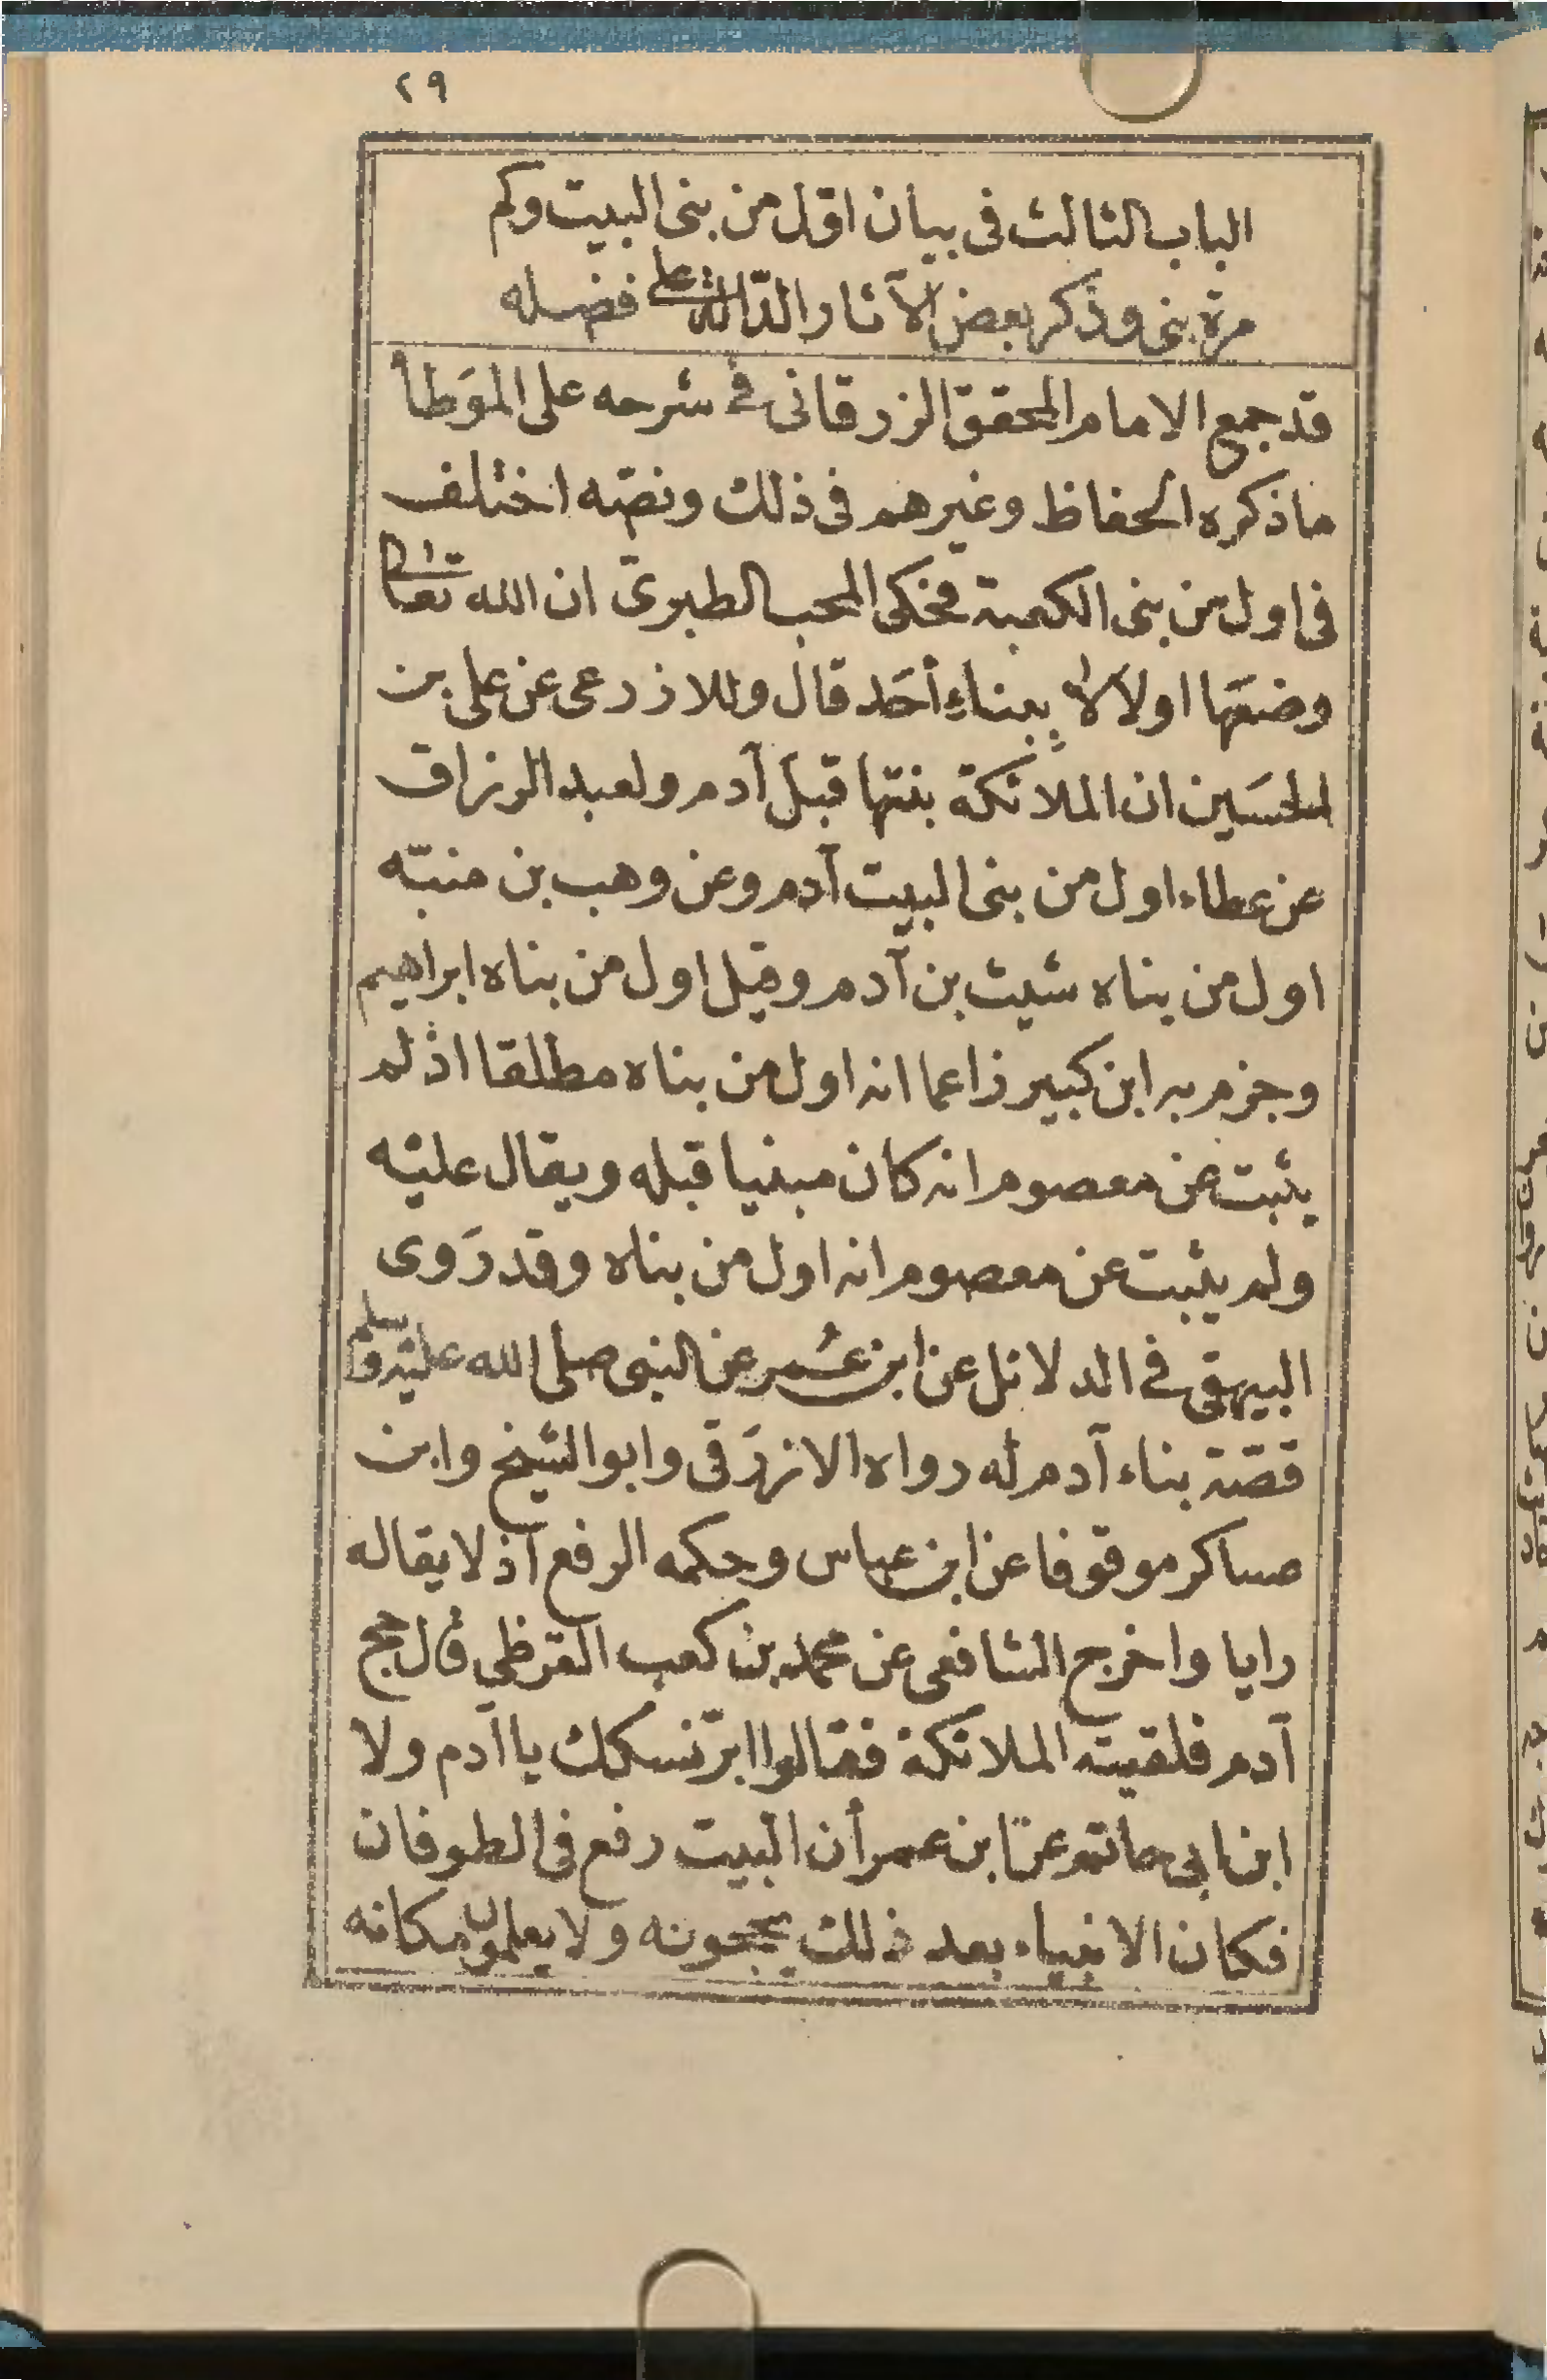 ٢٩
الباب الثالث فى بيان اوّل من بنى البيت وكم
مرة بنى وذكر بعض الآثار الدّالة على فضله
قد جمع الامام المحقق الزرقانى فى شرحه على الموَطأ
ماذكره الحفاظ وغيرهم فى ذلك ونصّه اختلف
فى اول من بنى الكعبة فحكى المحب الطبرى ان الله تعالى
وضعَها اولا لا ببناءِ أحَد قال وللازرعى عن على بن
الحسَين ان الملائكة بنتها قبل آدم ولعبد الرزاق
عن عطاء اول من بنى البيت آدم وعن وهب بن منبّه
اول من بناه شيث بن آدم وقيل اول من بناه ابراهيم
وجزم به ابن كبير زاعما انه اول من بناه مطلقا اذ لم
يثبت عن معصوم انه كان مبنيا قبله ويقال عليْه
ولم يثبت عن معصوم انه اول من بناه وقد رَوى
البيهقى فى الدلائل عن ابن عُمر عن النبى صلى الله عليْه وسلم
قصّة بناء آدم له رواه الازرَقى وابو الشيخ وابن
عساكر موقوفا عن ابن عباس وحكمه الرفع اذ لايقاله
رايا واخرج الشافعى عن محمد بن كعب القرظي قال حج
آدم فلقيته الملائكة فقالوا ابرّ نسكك يا آدم ولا
ابن ابى حاتم عن ابن عمر أن البيت رفع فى الطوفان
فكان الانبياء بعد ذلك يحجونه ولا يعلمون مكانه